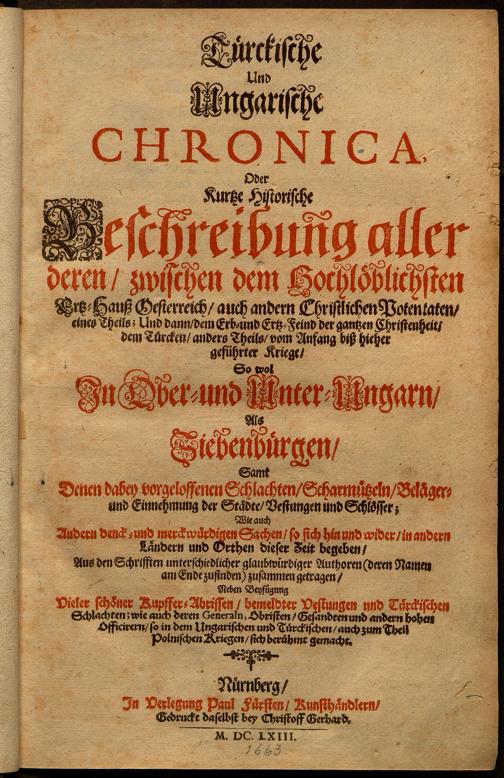 Türckische
Und
Ungarische
CHRONICA,
Oder
Kurtze Historische
Beschreibung aller
deren / zwischen dem Hochlöblichsten
Ertz-Hauß Oesterreich / auch andern Christlichen Potentaten /
eines Theils; Und dann / dem Erb- und Ertz-Feind der gantzen Christenheit /
dem Türcken / anders Theils / vom Anfang biß hieher
geführter Kriege /
So wol
In Ober- und Unter-Ungarn /
Als
Siebenbürgen /
Samt
Denen dabey vorgeloffenen Schlachten / Scharmützeln / Beläger-
und Einnehmung der Städte / Vestungen und Schlösser;
Wie auch
Andern denck- und merckwürdigen Sachen / so sich hin und wider / in andern
Ländern und Orthen dieser Zeit begeben /
Aus den Schrifften unterschiedlicher glaubwürdiger Authoren (deren Namen
am Ende zufinden) zusammen getragen /
Neben Beyfügung
Vieler schöner Kupffer-Abrissen / bemeldter Vestungen und Türckischen
Schlachten; wie auch deren Generaln, Obristen / Gesandten und andern hohen
Officirern / so in dem Ungarischen und Türckischen / auch zum Theil
Polnischen Kriegen / sich berühmt gemacht.
Nürnberg /
In Verlegung Paul Fürsten / Kunsthändlern /
Gedruckt daselbst bey Christoff Gerhard.
M. DC. LXIII.
1663